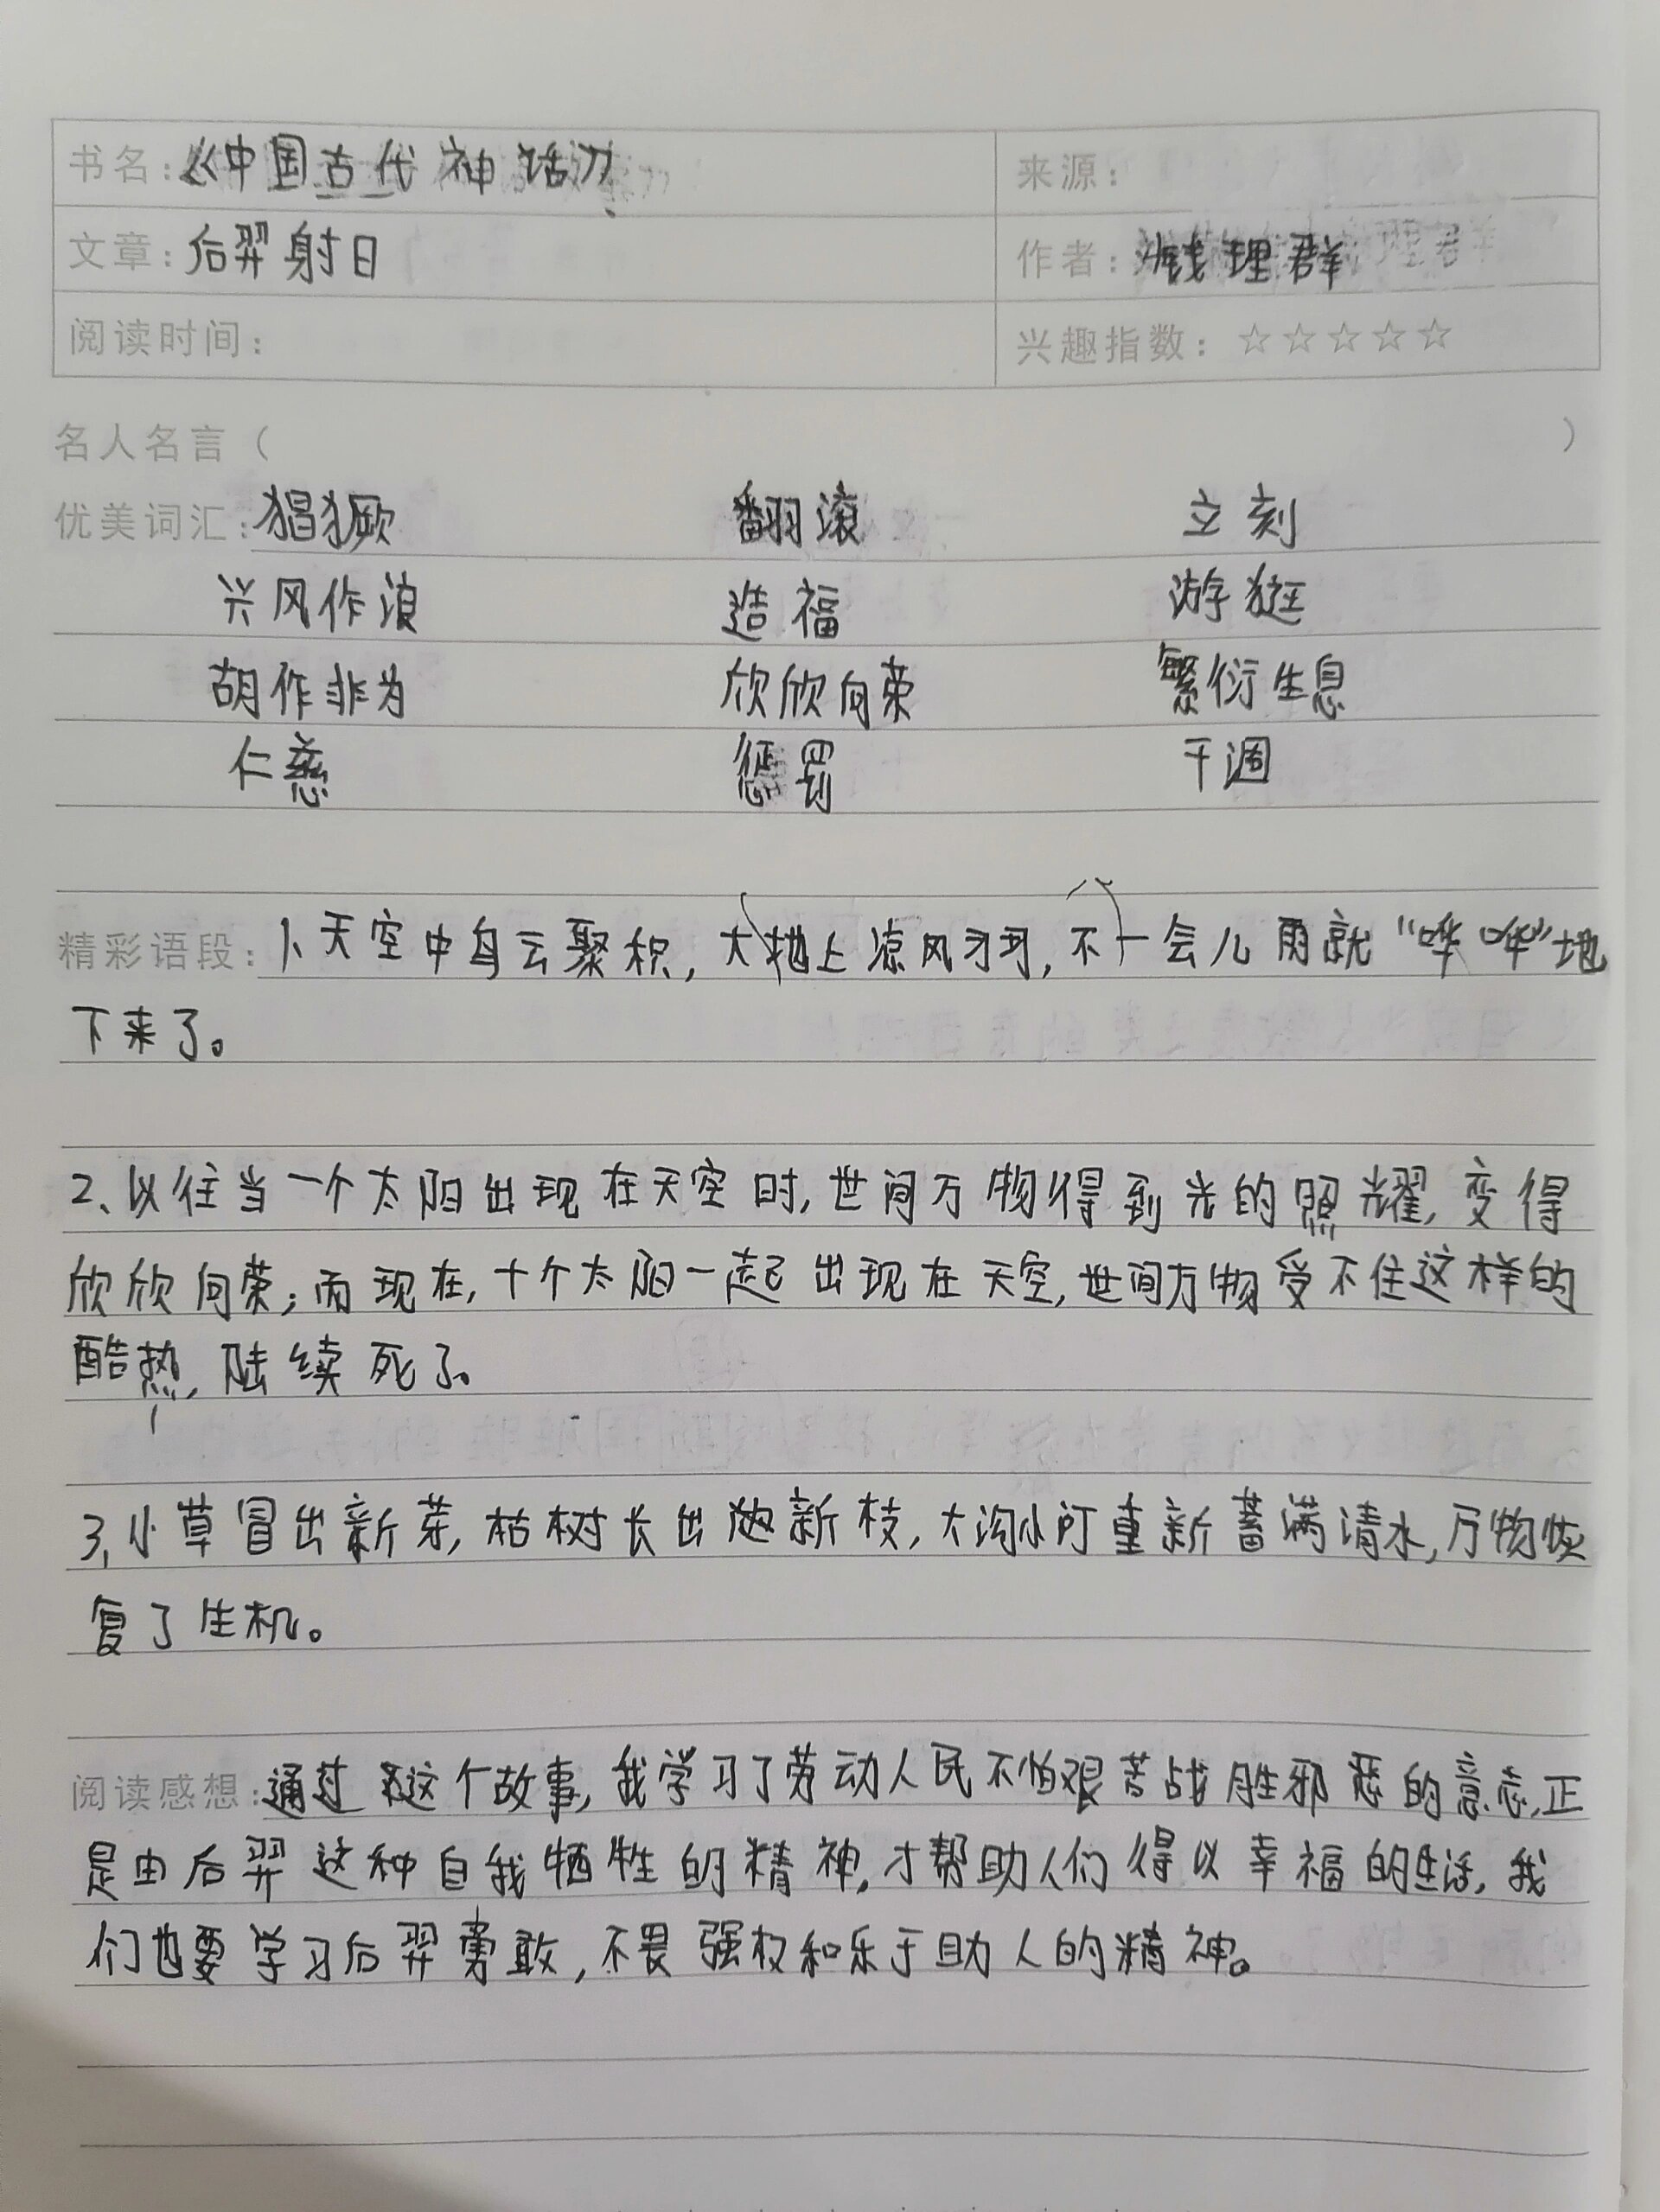 书名：《中国古代神话》 来源：
文章：后羿射日 作者：钱理群
阅读时间： 兴趣指数：☆☆☆☆☆
名人名言（ ）
优美词汇：猖獗 翻滚 立刻
兴风作浪 造福 游逛
胡作非为 欣欣向荣 繁衍生息
仁慈 惩罚 干涸
精彩语段：1、天空中乌云聚积，大地上凉风习习，不一会儿雨就“哗哗”地
下来了。
2、以往当一个太阳出现在天空时，世间万物得到光的照耀，变得
欣欣向荣；而现在，十个太阳一起出现在天空，世间万物受不住这样的
酷热，陆续死了。
3、小草冒出新芽，枯树长出新枝，大沟小河重新蓄满清水，万物恢
复了生机。
阅读感想：通过这个故事，我学习了劳动人民不怕艰苦战胜邪恶的意志，正
是由后羿这种自我牺牲的精神，才帮助人们得以幸福的生活，我
们也要学习后羿勇敢，不畏强权和乐于助人的精神。